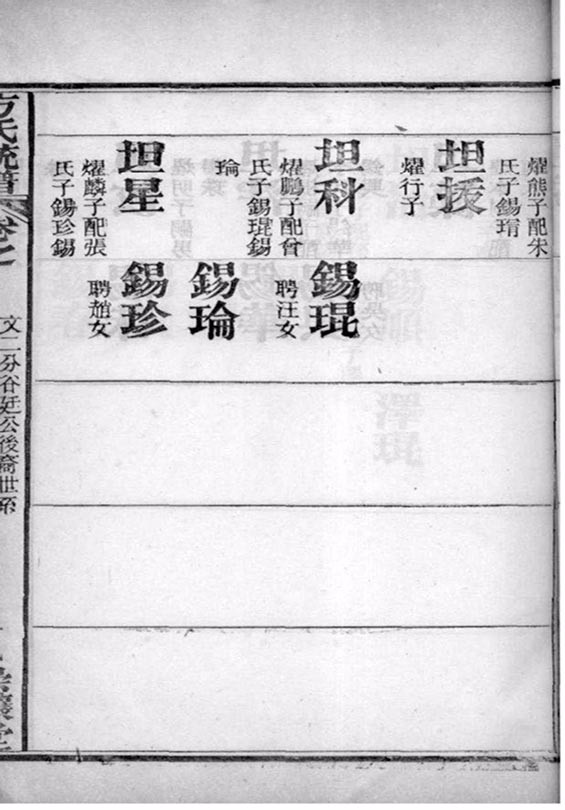 燿熊子配朱
氏子錫琄
坦援
燿行子
坦科
燿鵬子配曾
氏子錫琨錫
琯
錫琨
聘汪女
錫琯
坦星
燿麟子配張
氏子錫珍錫
錫珍
聘趙女
方氏統譜
卷之
文二分谷廷公後裔世系